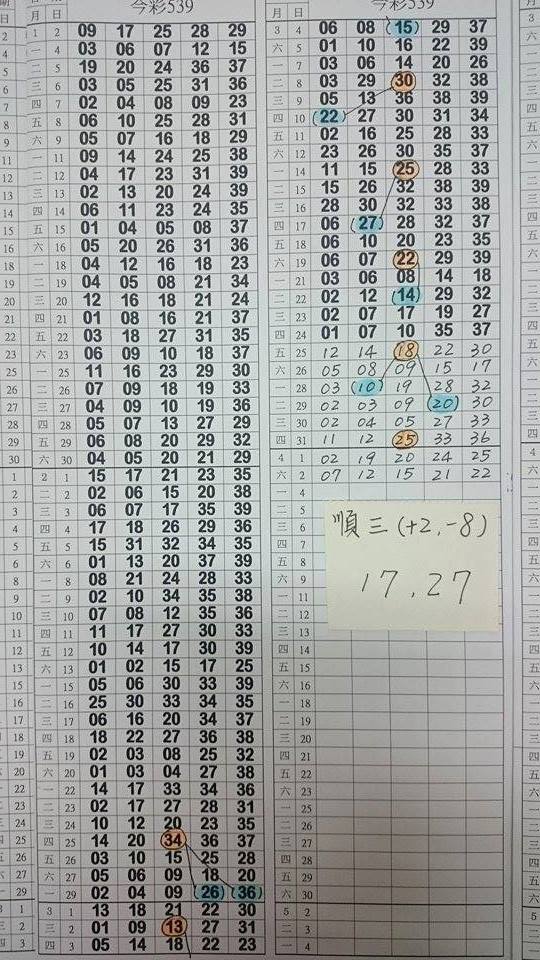 今彩539
1 2 09 17 25 28 29
一 4 03 06 07 12 15
二 5 19 20 24 36 37
三 6 03 05 25 31 36
四 7 02 04 08 09 23
五 8 06 10 25 28 31
六 9 05 07 16 18 29
一 11 09 14 24 25 38
二 12 04 17 23 31 39
三 13 02 13 20 24 39
四 14 06 11 23 24 35
五 15 01 04 05 08 37
六 16 05 20 26 31 36
一 18 04 12 16 18 23
二 19 04 05 08 21 34
三 20 12 16 18 21 24
四 21 01 08 16 21 37
五 22 03 18 27 31 35
六 23 06 09 10 18 37
一 25 11 16 23 29 30
二 26 07 09 18 19 33
三 27 04 09 10 19 36
四 28 05 07 13 27 29
五 29 06 08 20 29 32
六 30 04 05 20 21 29
2 1 15 17 21 23 35
二 2 02 06 15 20 38
三 3 06 07 17 35 39
四 4 17 18 26 29 36
五 5 15 31 32 34 35
六 6 01 13 20 37 39
一 8 08 21 24 28 33
二 9 02 10 34 35 38
三 10 07 08 12 35 36
四 11 11 17 27 30 33
五 12 10 14 17 30 39
六 13 01 02 15 17 25
一 15 05 06 30 33 39
二 16 25 30 33 34 35
三 17 06 16 20 34 37
四 18 18 22 27 36 38
五 19 02 03 08 25 32
六 20 01 03 04 27 38
一 22 14 17 33 34 36
二 23 02 17 27 28 31
三 24 10 12 20 23 35
四 25 14 20 34 36 37
五 26 03 10 15 25 28
六 27 05 06 09 18 20
一 29 02 04 09 (26) (36)
3 1 13 18 21 22 30
三 2 01 09 13 27 31
四 3 05 14 18 22 23
月 日 今彩539
3 4 06 08 (15) 29 37
六 5 01 10 16 22 39
一 7 03 06 14 20 26
二 8 03 29 30 32 38
三 9 05 13 36 38 39
四 10 (22) 27 30 31 34
五 11 02 16 25 28 33
六 12 23 26 30 35 37
一 14 11 15 25 28 33
二 15 15 26 32 38 39
三 16 28 30 32 33 38
四 17 06 (27) 28 32 37
五 18 06 10 20 23 35
六 19 06 07 22 29 39
一 21 03 06 08 14 18
二 22 02 12 (14) 29 32
三 23 02 07 17 19 27
四 24 01 07 10 35 37
五 25 12 14 18 22 30
六 26 05 08 09 15 17
一 28 03 (10) 19 28 32
二 29 02 03 09 (20) 30
三 30 02 04 05 27 33
四 31 11 12 25 33 36
4 1 02 19 20 24 25
六 2 07 12 15 21 22
一 4
二 5
三 6
四 7
五 8
六 9
一 11
二 12
三 13
四 14
五 15
六 16
一 18
二 19
三 20
四 21
五 22
六 23
一 25
二 26
三 27
四 28
五 29
六 30
5 2
二 3
三 4
順三(+2,-8)
17.27